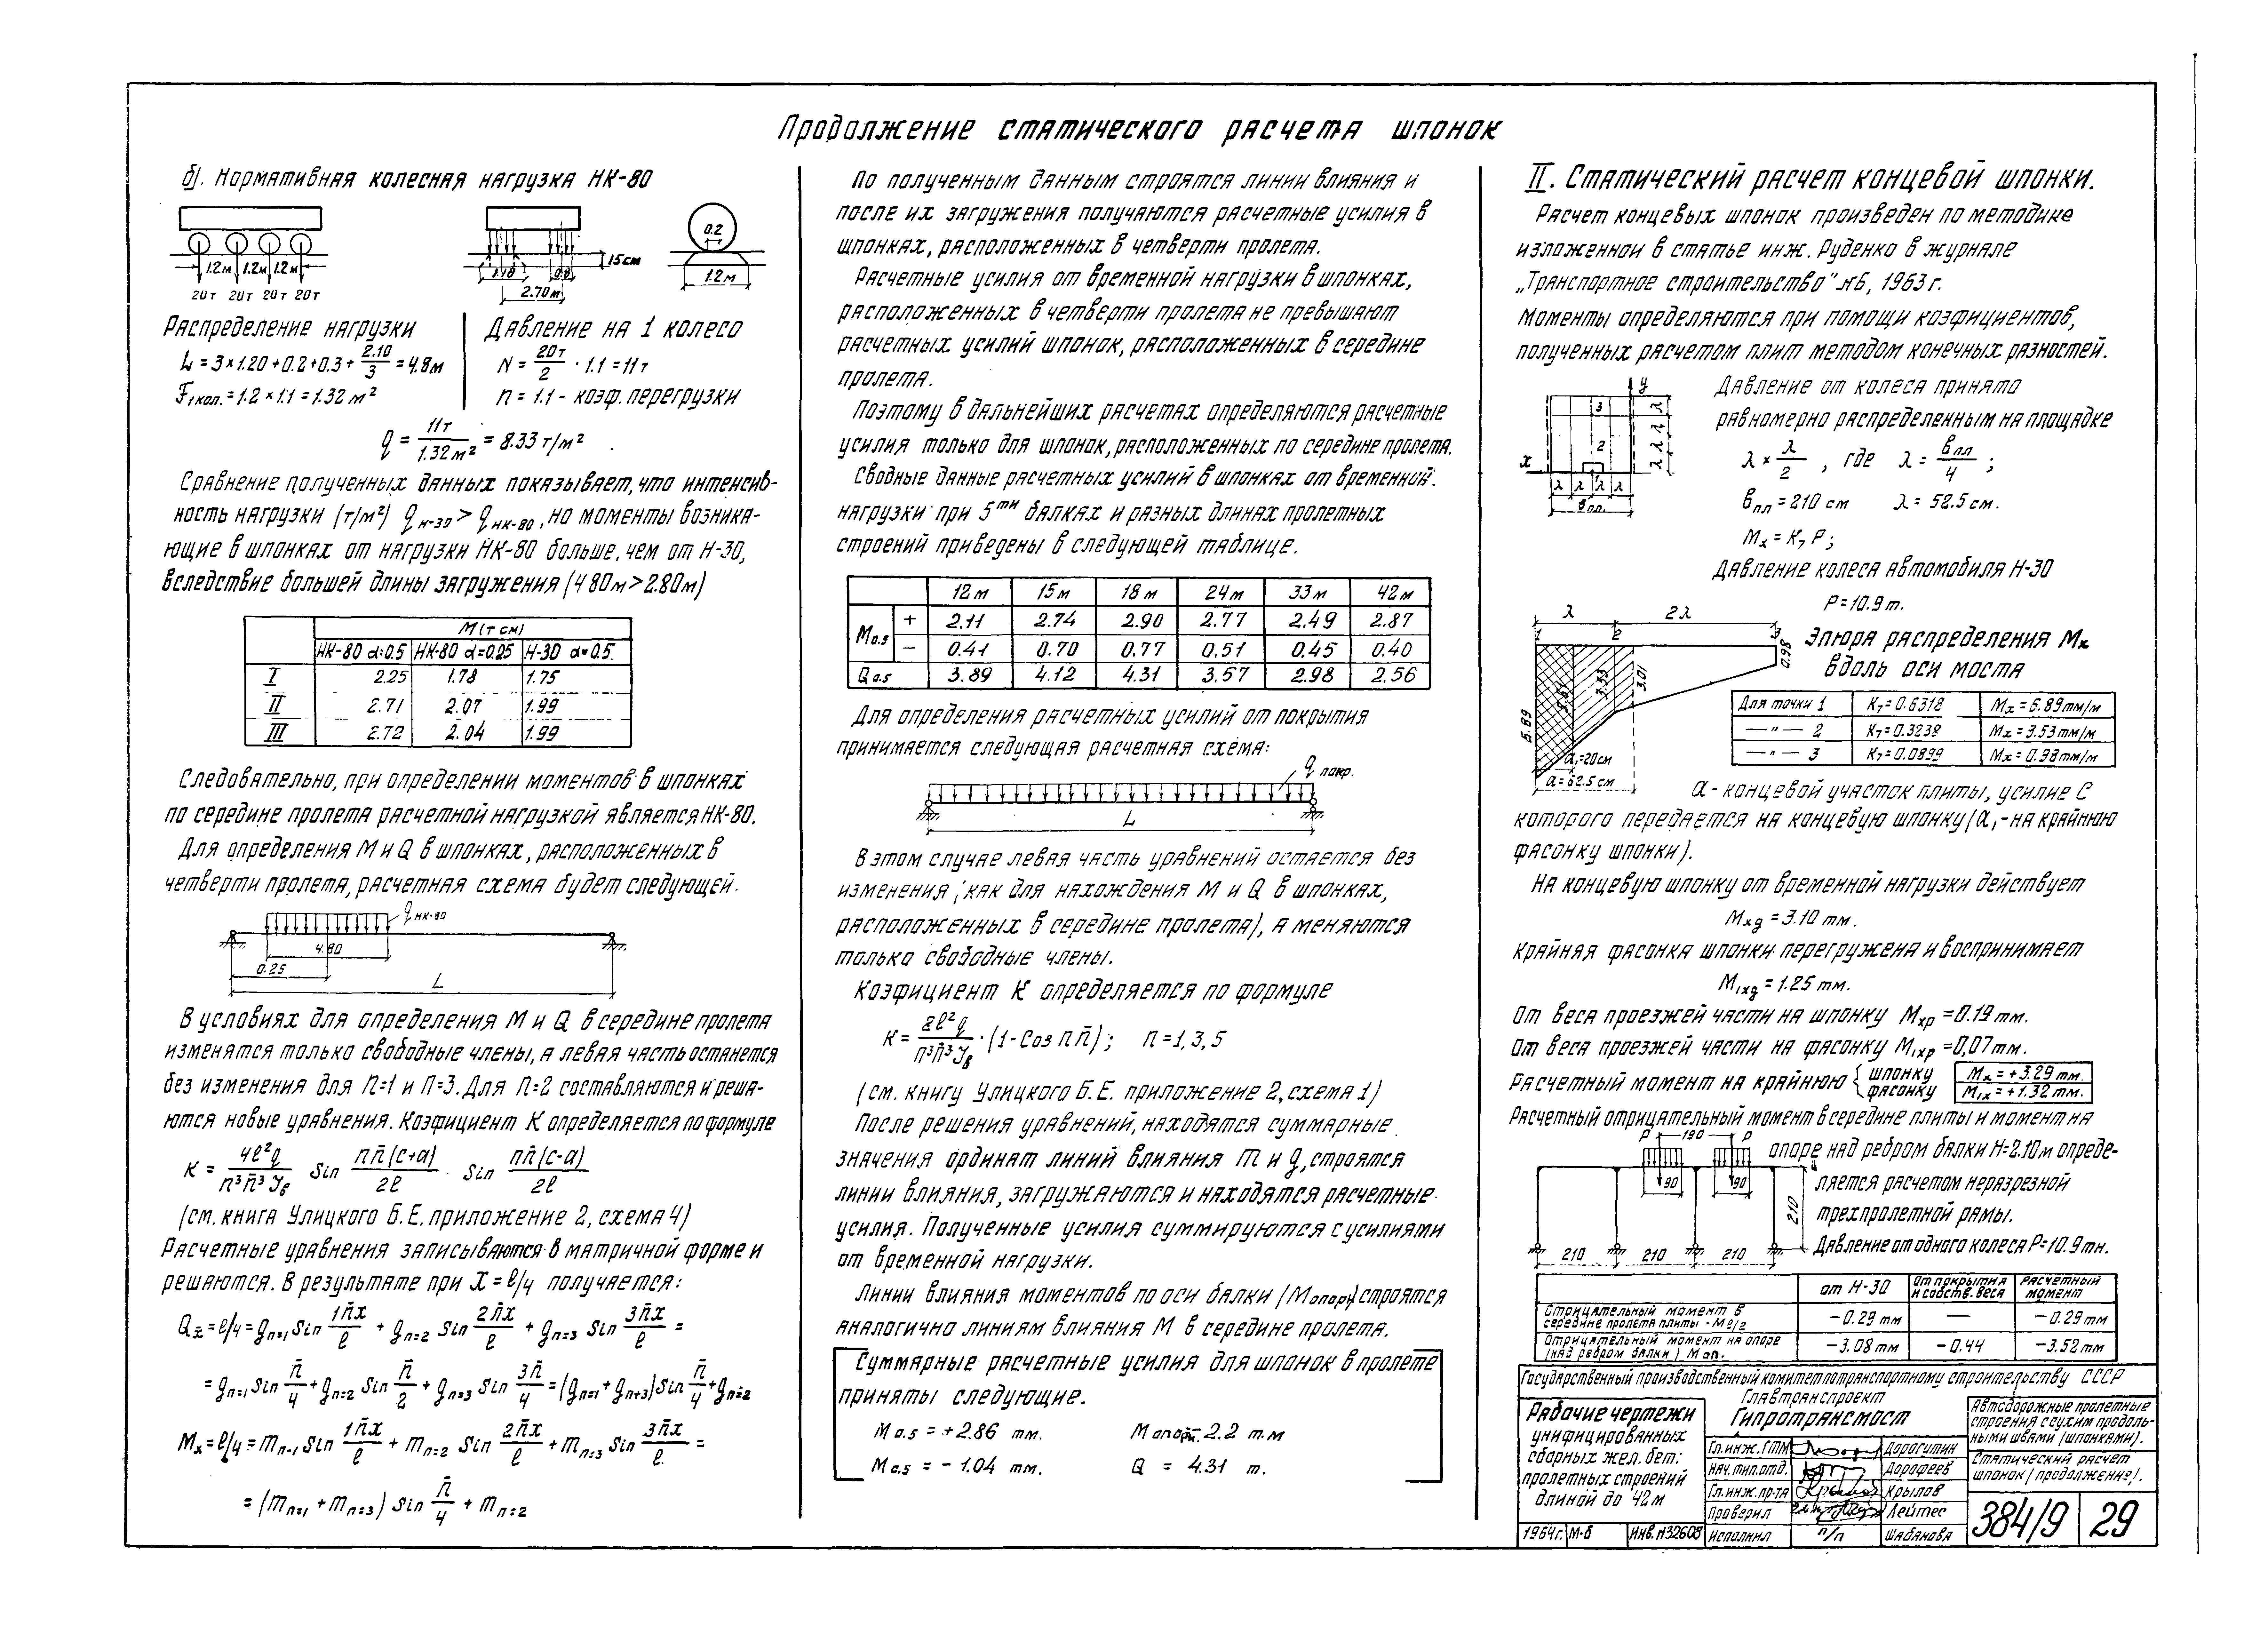 Продолжение статического расчета шпонок
б). Нормативная колесная нагрузка НК-80
1.2м 1.2м 1.2м
20т 20т 20т 20т
15см
2.70м
0.2
1.2м
Распределение нагрузки
L = 3×1.20+0.2+0.3+ 2.10/3 = 4.8м
F1кол. = 1.2×1.1 = 1.32 м²
Давление на 1 колесо
N = 20т/2 · 1.1 = 11т
n = 1.1 - коэф. перегрузки
q = 11т/1.32м² = 8.33 т/м²
Сравнение полученных данных показывает, что интенсив-
ность нагрузки (т/м²) qн-30 > qнк-80, но моменты возника-
ющие в шпонках от нагрузки НК-80 больше, чем от Н-30,
вследствие большей длины загружения (4 80м > 2.80м)
М (т см)
НК-80 α=0.5 НК-80 α=0.25 Н-30 α=0.5
I 2.25 1.78 1.75
II 2.71 2.07 1.99
III 2.72 2.04 1.99
Следовательно, при определении моментов в шпонках
по середине пролета расчетной нагрузкой является НК-80.
Для определения М и Q в шпонках, расположенных в
четверти пролета, расчетная схема будет следующей.
qнк-80
4.80
0.25
L
В условиях для определения М и Q в середине пролета
изменятся только свободные члены, а левая часть останется
без изменения для n=1 и n=3. Для n=2 составляются и реша-
ются новые уравнения. Коэфициент К определяется по формуле
K = 4l²q/n³π³Jв Sin nπ(c+a)/2l · Sin nπ(c-a)/2l
(см. книга Улицкого Б.Е. приложение 2, схема 4)
Расчетные уравнения записываются в матричной форме и
решаются. В результате при X = l/4 получается:
Qx=l/4 = gn=1 Sin 1πx/l + gn=2 Sin 2πx/l + gn=3 Sin 3πx/l =
= gn=1 Sin π/4 + gn=2 Sin π/2 + gn=3 Sin 3π/4 = (gn=1 + gn+3) Sin π/4 + gn=2
Mx=l/4 = mn=1 Sin 1πx/l + mn=2 Sin 2πx/l + mn=3 Sin 3πx/l =
= (mn=1 + mn=3) Sin π/4 + mn=2
По полученным данным строятся линии влияния и
после их загружения получаются расчетные усилия в
шпонках, расположенных в четверти пролета.
Расчетные усилия от временной нагрузки в шпонках,
расположенных в четверти пролета не превышают
расчетных усилий шпонок, расположенных в середине
пролета.
Поэтому в дальнейших расчетах определяются расчетные
усилия только для шпонок, расположенных по середине пролета.
Сводные данные расчетных усилий в шпонках от временной
нагрузки при 5ти балках и разных длинах пролетных
строений приведены в следующей таблице.
12м 15м 18м 24м 33м 42м
М0.5 + 2.11 2.74 2.90 2.77 2.49 2.87
− 0.41 0.70 0.77 0.51 0.45 0.40
Q0.5 3.89 4.12 4.31 3.57 2.98 2.56
Для определения расчетных усилий от покрытия
принимается следующая расчетная схема:
q покр.
L
В этом случае левая часть уравнений остается без
изменения (как для нахождения М и Q в шпонках,
расположенных в середине пролета), а меняются
только свободные члены.
Коэфициент К определяется по формуле
K = 2l²q/n³π³Jв · (1-Cos nπ); n=1,3,5
(см. книгу Улицкого Б.Е. приложение 2, схема 1)
После решения уравнений, находятся суммарные
значения ординат линий влияния m и g, строятся
линии влияния, загружаются и находятся расчетные
усилия. Полученные усилия суммируются с усилиями
от временной нагрузки.
Линии влияния моментов по оси балки (Mопорн) строятся
аналогично линиям влияния М в середине пролета.
Суммарные расчетные усилия для шпонок в пролете
приняты следующие.
М0.5 = +2.86 тм. Мопорн. 2.2 т.м
М0.5 = - 1.04 тм. Q = 4.31 т.
II. Статический расчет концевой шпонки.
Расчет концевых шпонок произведен по методике
изложенной в статье инж. Руденко в журнале
„Транспортное строительство" №6, 1963 г.
Моменты определяются при помощи коэфициентов,
полученных расчетом плит методом конечных разностей.
y
3
2
x
λ λ λ λ
λ λ λ λ
bпл.
Давление от колеса принято
равномерно распределенным на площадке
λ × λ/2, где λ = bпл/4 ;
bпл = 210 см λ = 52.5 см.
Mx = K7 P ;
Давление колеса автомобиля Н-30
P = 10.9 т.
λ 2λ
1 2 3
5.89 3.53 3.01 0.98
a1=20см
a=62.5 см
Эпюра распределения Мx
вдоль оси моста
Для точки 1 K7=0.6318 Mx=6.89тм/м
—"— 2 K7=0.3238 Mx=3.53тм/м
—"— 3 K7=0.0899 Mx=0.98тм/м
a - концевой участок плиты, усилие с
которого передается на концевую шпонку (a1 - на крайнюю
фасонку шпонки).
На концевую шпонку от временной нагрузки действует
Mxд = 3.10 тм.
Крайняя фасонка шпонки перегружена и воспринимает
M1xд = 1.25 тм.
От веса проезжей части на шпонку Mxp = 0.19 тм.
От веса проезжей части на фасонку M1xp = 0,07тм.
Расчетный момент на крайнюю { шпонку Mx = +3.29 тм.
фасонку M1x = +1.32 тм.
Расчетный отрицательный момент в середине плиты и момент на
опоре над ребром балки H=2.10м опреде-
ляется расчетом неразрезной
трехпролетной рамы.
Давление от одного колеса P=10.9тн.
P 190 P
90 90
210
210 210 210
от Н-30 От покрытия и собств. веса Расчетный момент
Отрицательный момент в
середине пролета плиты - Ml/2 −0.29 тм — −0.29 тм
Отрицательный момент на опоре
(над ребром балки) Моп. −3.08 тм −0.44 −3.52 тм
Государственный производственный комитет по транспортному строительству СССР
Главтранспроект
Гипротрансмост
Рабочие чертежи
унифицированных
сборных жел. бет.
пролетных строений
длиной до 42м
1964г. М-б Инв. №32608
Гл.инж.ГТМ
Нач.тип.отд. Дорофеев
Гл.инж.пр-та Крылов
Проверил Лейтес
Исполнил п/п Шабанова
Автодорожные пролетные
строения с сухим продоль-
ными швами (шпонками).
Статический расчет
шпонок (продолжение).
384/9 29